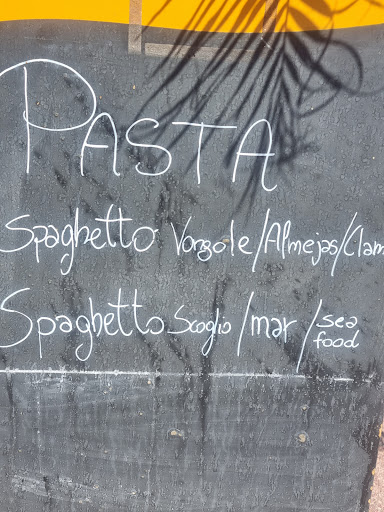 PASTA
Spaghetto Vongole/Almejas/Clam
Spaghetto Scoglio/mar/sea food